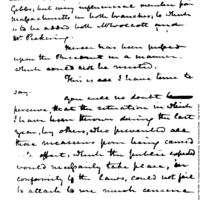 Gibbs, but very influential members from
Massachusetts in both branches; to which
is to be added both Wolcott and
Mr Pickering.
Mercer has been passed
upon the Precedent in a manner
which could not be resisted.
This is all I have time to
say.
You will no doubt be
perceive that the situation in which
I have been thrown during the last
year, by others, who prevented all
those measures from being carried
effect, which the public expected
would necessarily take place, in
conformity to the laws, could not fail
to attach to me much censure